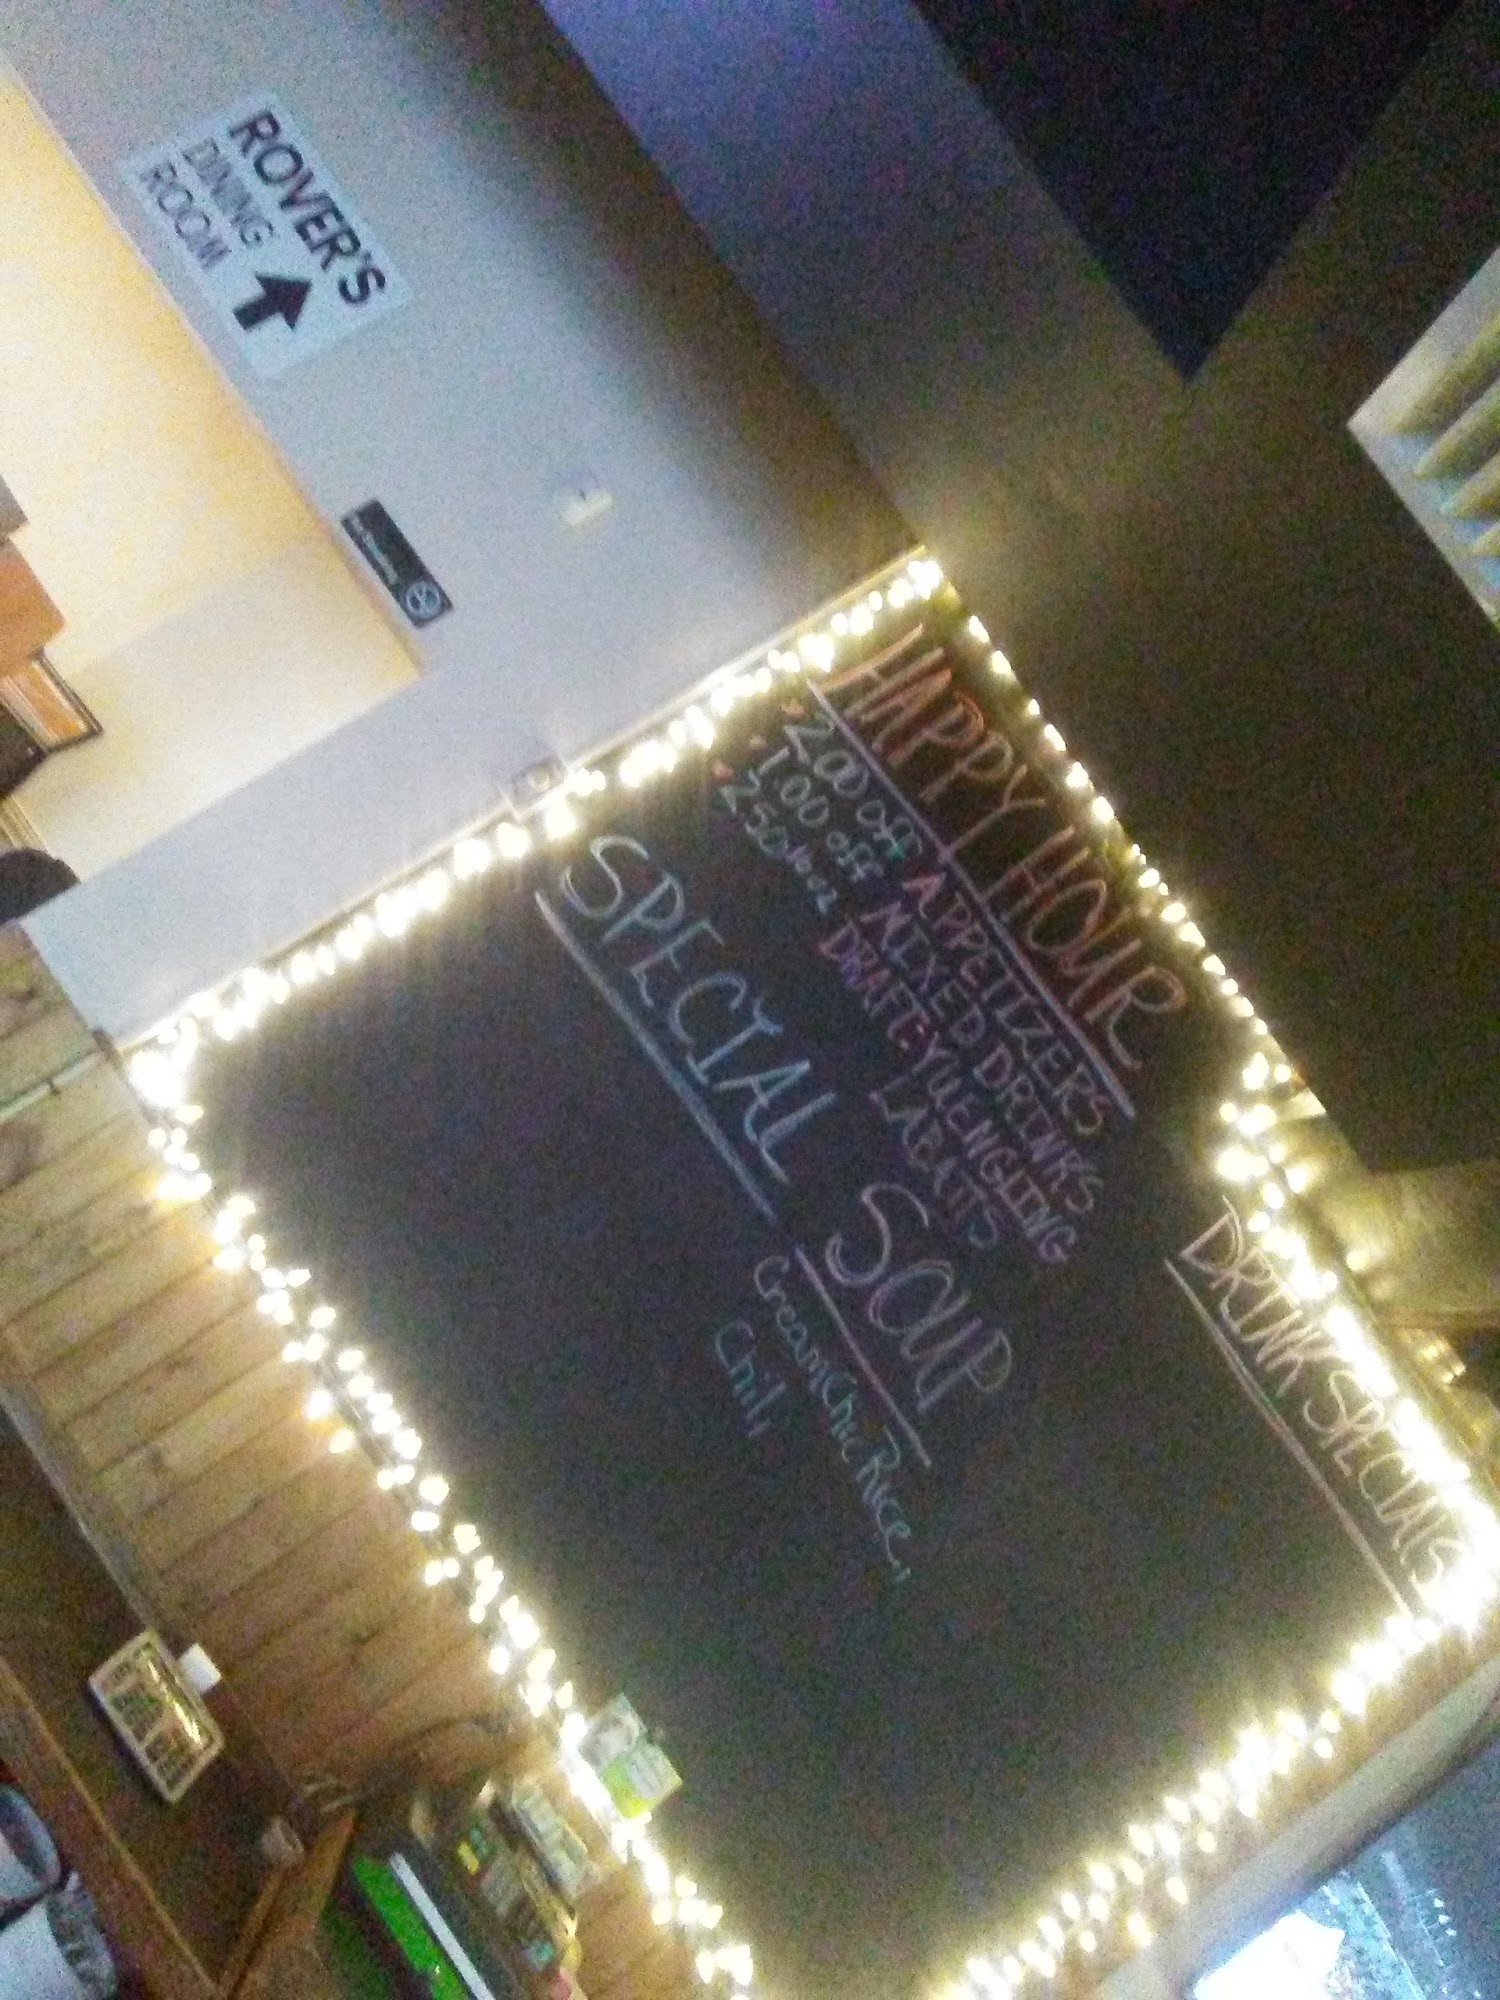 ROVER'S
DINING
ROOM
HAPPY HOUR
200 off APPETIZERS
100 off MIXED DRINKS
250 16oz DRAFT YUENGLING
LABATTS
SPECIAL
SOUP
Cream Chic Rice
Chili
DRINK SPECIALS